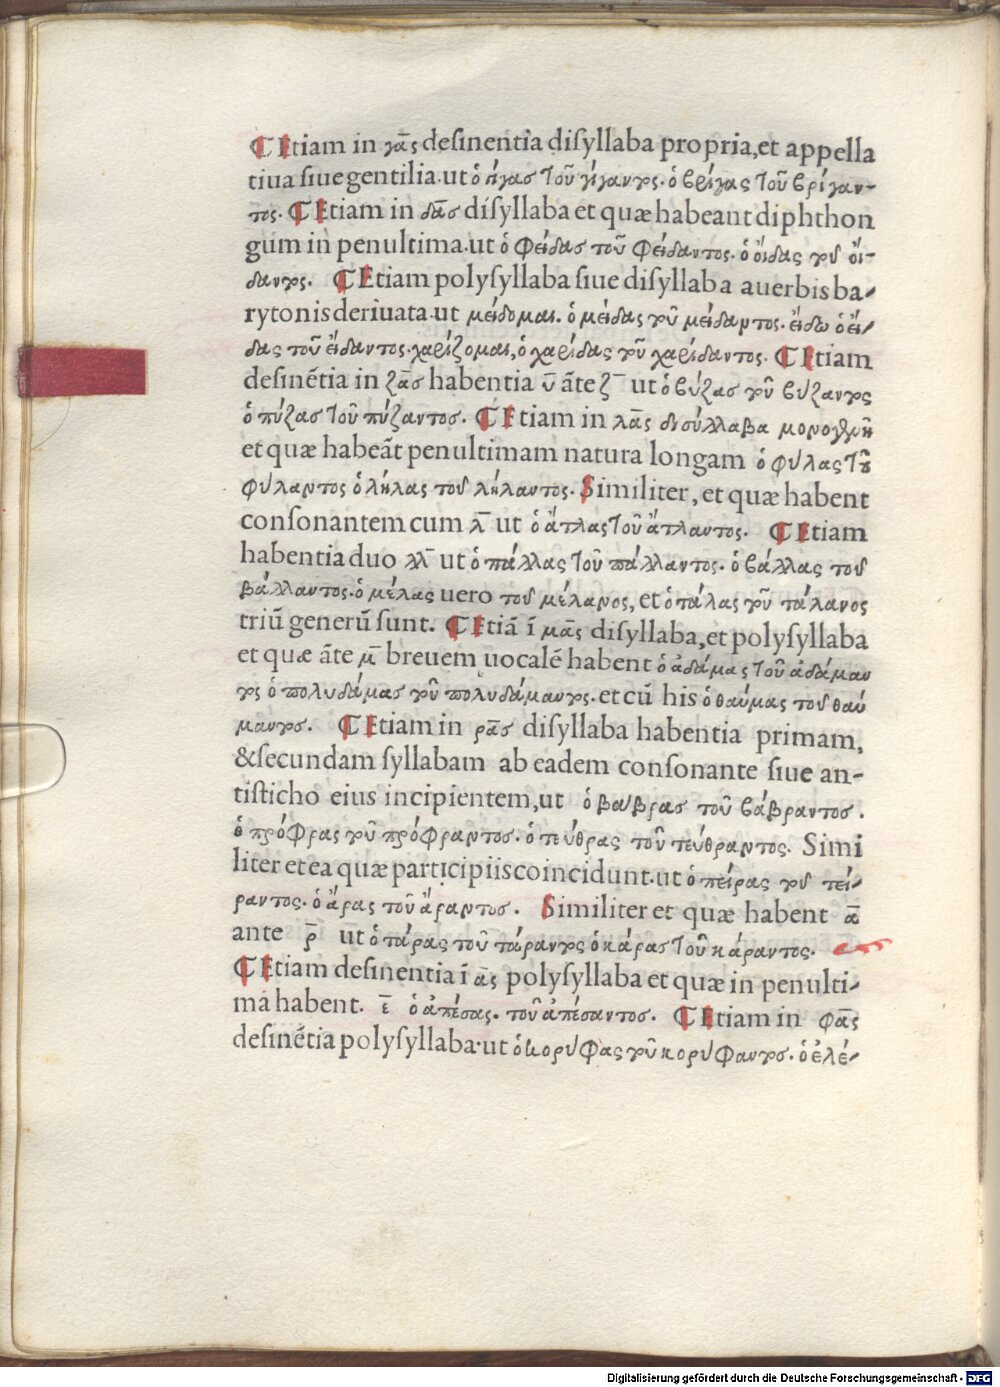 ¶ Etiam in γᾱς desinentia disyllaba propria,et appella
tiua siue gentilia.ut ὁ γίγας τοῦ γίγαντος. ὁ βρίγας τοῦ βρίγαν-
τος. ¶ Etiam in δᾱς disyllaba et quæ habeant diphthon
gum in penultima.ut ὁ φείδας τοῦ φείδαντος. ὁ οἴδας τοῦ οἴ-
δαντος. ¶ Etiam polysyllaba siue disyllaba a uerbis ba-
rytonis deriuata.ut μείδομαι. ὁ μείδας τοῦ μείδαντος. εἴδω ὁ εἴ-
δας τοῦ εἴδαντος.χαρίζομαι,ὁ χαρίδας τοῦ χαρίδαντος. ¶ Etiam
desinẽtia in ζᾱς habentia ῡ ãte ζ̄ ut ὁ βύζας τοῦ βύζαντος
ὁ πύζας τοῦ πύζαντος. ¶ Etiam in λᾱς δισύλλαβα μονογενῆ
et quæ habeãt penultimam natura longam ὁ φύλας τοῦ
φύλαντος ὁ λήλας τοῦ λήλαντος. Similiter, et quæ habent
consonantem cum λ̄ ut ὁ ἄτλας τοῦ ἄτλαντος. ¶ Etiam
habentia duo λλ̄ ut ὁ πάλλας τοῦ πάλλαντος. ὁ βάλλας τοῦ
βάλλαντος.ὁ μέλας uero τοῦ μέλανος, et ὁ τάλας τοῦ τάλανος
triũ generũ sunt. ¶ Etiã ĩ μᾱς disyllaba,et polysyllaba
et quæ ãte μ̄ breuem uocalẽ habent ὁ ἀδάμας τοῦ ἀδάμαν
τος ὁ πολυδάμας τοῦ πολυδάμαντος.et cũ his ὁ θαύμας τοῦ θαύ
μαντος. ¶ Etiam in ρᾱς disyllaba habentia primam,
&secundam syllabam ab eadem consonante siue an-
tisticho eius incipientem,ut ὁ βάβρας τοῦ βάβραντος.
ὁ πρόφρας τοῦ πρόφραντος. ὁ τεύθρας τοῦ τεύθραντος. Simi
liter et ea quæ participiis coincidunt.ut ὁ πείρας τοῦ πεί-
ραντος. ὁ ἄρας τοῦ ἄραντος. Similiter et quæ habent ᾱ
ante ρ̄ ut ὁ τάρας τοῦ τάραντος ὁ κάρας τοῦ κάραντος.
¶ Etiam desinentia ĩ ᾱς polysyllaba et quæ in penulti-
ma habent. ε̄ ὁ ἀπέσας. τοῦ ἀπέσαντος. ¶ Etiam in φᾱς
desinẽtia polysyllaba.ut ὁ κορύφας τοῦ κορύφαντος. ὁ ἐλέ-
Digitalisierung gefördert durch die Deutsche Forschungsgemeinschaft - DFG